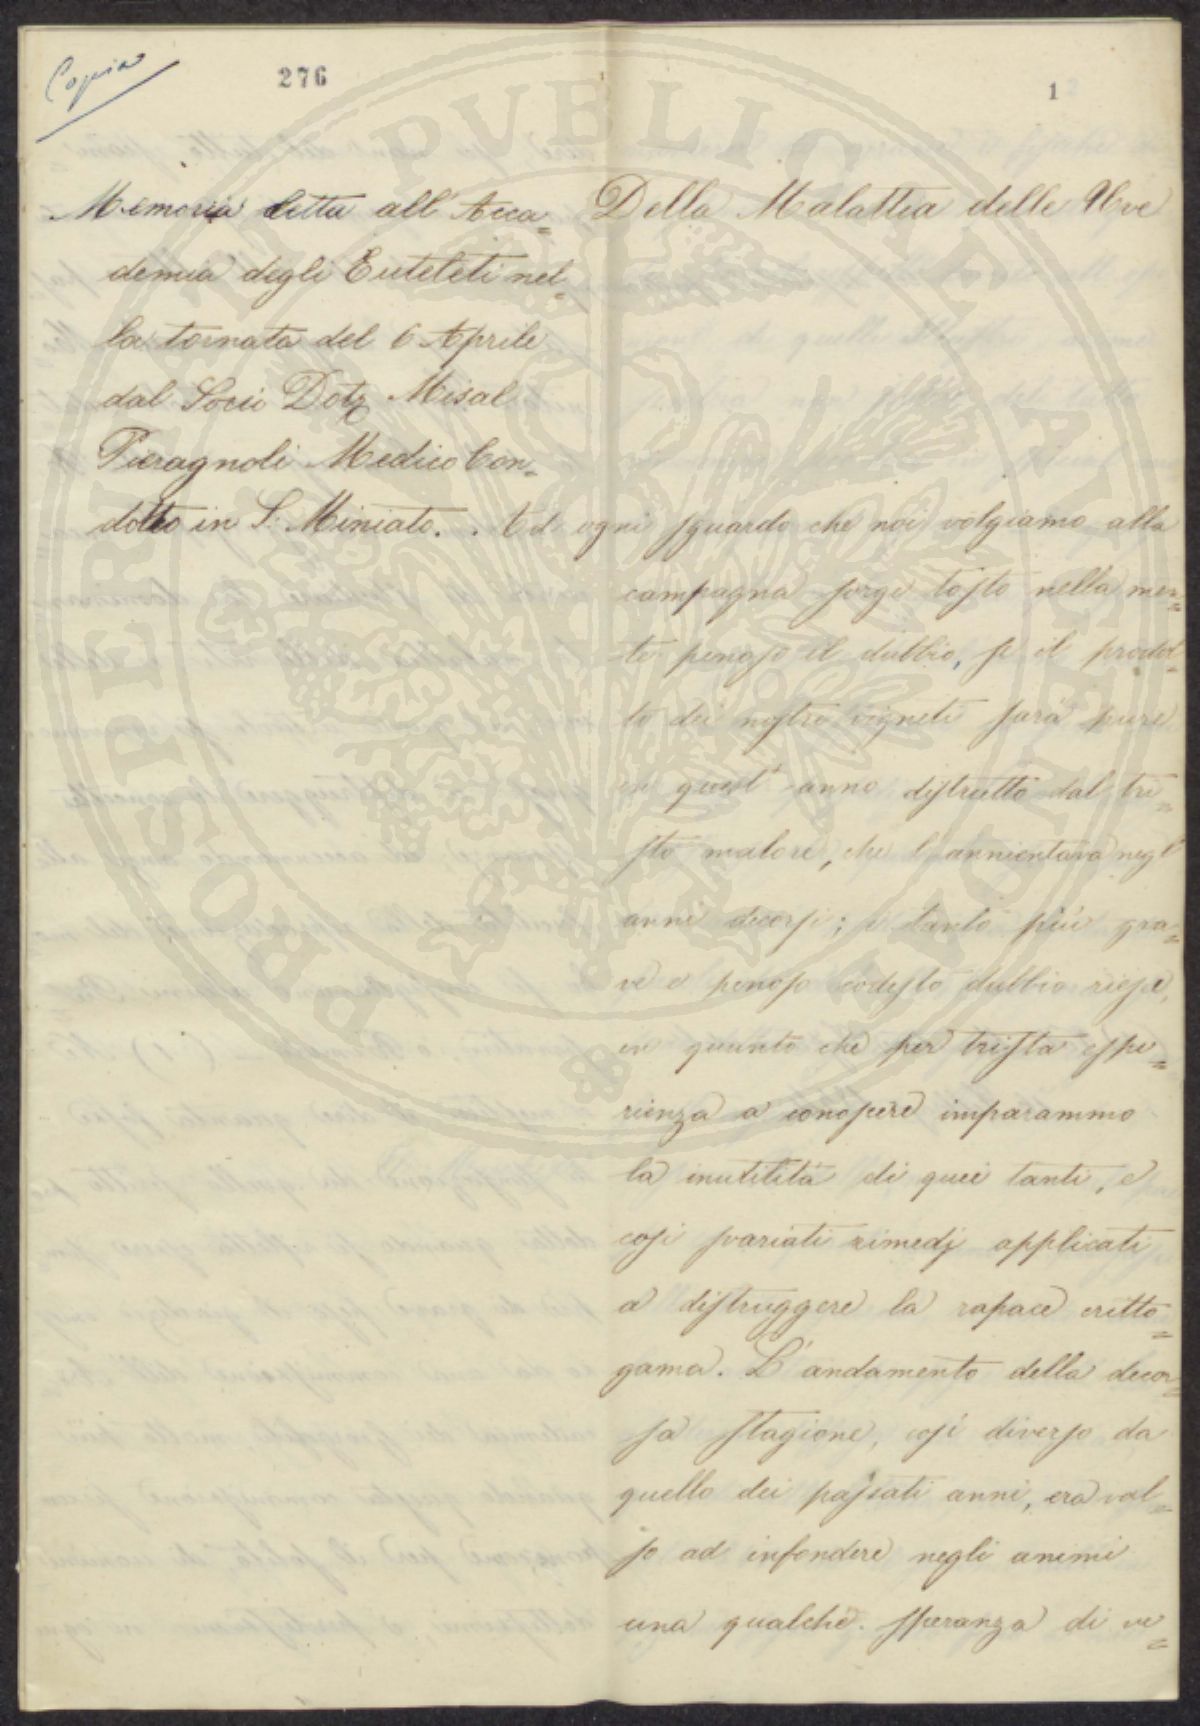 Copia
276
1
Memoria letta all' Acca=
demia degli Euteleti nel=
la tornata del 6 Aprile
dal Socio Dott. Misal
Pieragnoli Medico Con=
dotto in S. Miniato.
Della Malattia delle Uve
Ad ogni sguardo che noi volgiamo alla
campagna sorge tosto nella men=
te penoso il dubbio, se il prodot=
to dei nostri vigneti sarà pure
in quest' anno distrutto dal tri=
sto malore, che l' annientava negl'
anni decorsi; e tanto più gra=
ve e penoso codesto dubbio riesce,
in quanto che per trista espe=
rienza a conoscere imparammo
la inutilità di quei tanti, e
così svariati rimedj applicati
a distruggere la rapace critto=
gama. L' andamento della decor=
sa stagione, così diverso da
quello dei passati anni, era val=
so ad infondere negli animi
una qualche speranza di ve=
PROSPERITATI PUBLICAE AUGENDAE